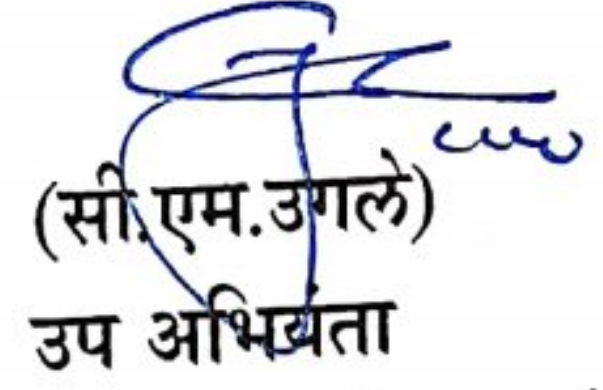 (सी.एम.उगले)
उप अभियंता